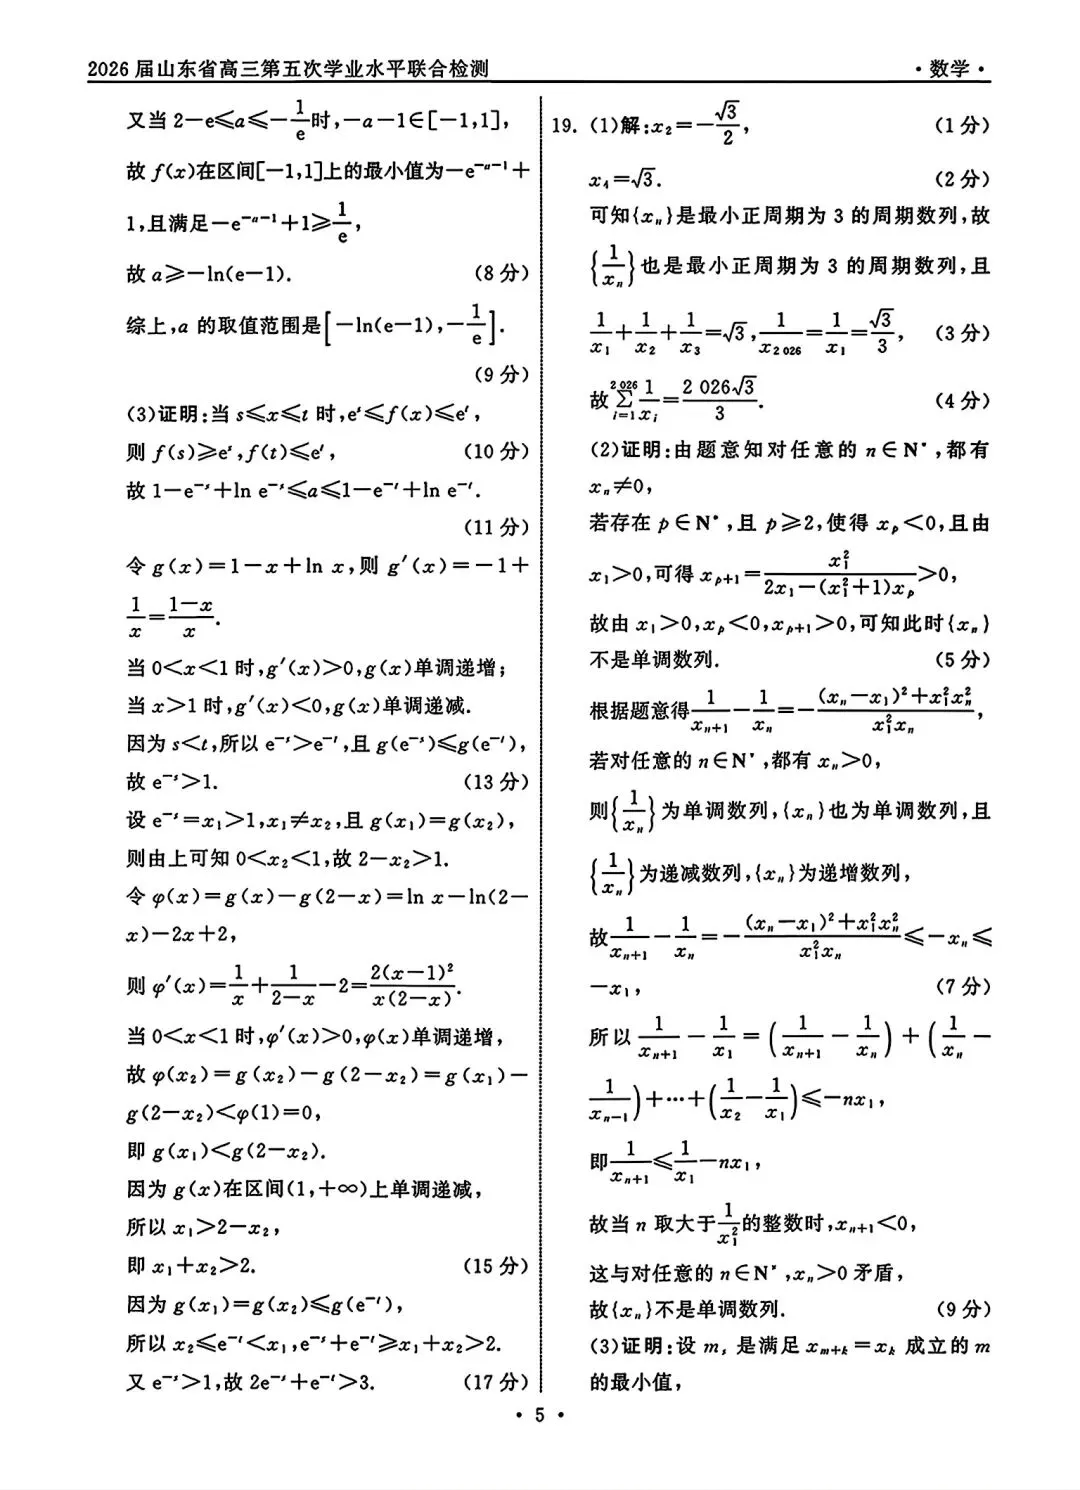 2026届山东省高三第五次学业水平联合检测 ·数学·
又当 2－e≤a≤－1/e时,－a－1∈[－1,1],
故 f(x)在区间[－1,1]上的最小值为－e^{－a－1}＋
1,且满足－e^{－a－1}＋1≥1/e,
故 a≥－ln(e－1). (8分)
综上,a 的取值范围是[－ln(e－1),－1/e].
(9分)
(3)证明:当 s≤x≤t 时,e^s≤f(x)≤e^t,
则 f(s)≥e^s,f(t)≤e^t, (10分)
故 1－e^{－s}＋ln e^{－s}≤a≤1－e^{－t}＋ln e^{－t}.
(11分)
令 g(x)＝1－x＋ln x,则 g′(x)＝－1＋
1/x＝(1－x)/x.
当 0＜x＜1 时,g′(x)＞0,g(x)单调递增;
当 x＞1 时,g′(x)＜0,g(x)单调递减.
因为 s＜t,所以 e^{－s}＞e^{－t},且 g(e^{－s})≤g(e^{－t}),
故 e^{－s}＞1. (13分)
设 e^{－s}＝x₁＞1,x₁≠x₂,且 g(x₁)＝g(x₂),
则由上可知 0＜x₂＜1,故 2－x₂＞1.
令 φ(x)＝g(x)－g(2－x)＝ln x－ln(2－
x)－2x＋2,
则 φ′(x)＝1/x＋1/(2－x)－2＝2(x－1)²/(x(2－x)).
当 0＜x＜1 时,φ′(x)＞0,φ(x)单调递增,
故 φ(x₂)＝g(x₂)－g(2－x₂)＝g(x₁)－
g(2－x₂)＜φ(1)＝0,
即 g(x₁)＜g(2－x₂).
因为 g(x)在区间(1,＋∞)上单调递减,
所以 x₁＞2－x₂,
即 x₁＋x₂＞2. (15分)
因为 g(x₁)＝g(x₂)≤g(e^{－t}),
所以 x₂≤e^{－t}＜x₁,e^{－s}＋e^{－t}≥x₁＋x₂＞2.
又 e^{－s}＞1,故 2e^{－s}＋e^{－t}＞3. (17分)
19. (1)解:x₂＝－√3/2, (1分)
x₄＝√3. (2分)
可知{xₙ}是最小正周期为 3 的周期数列,故
{1/xₙ}也是最小正周期为 3 的周期数列,且
1/x₁＋1/x₂＋1/x₃＝√3,1/x_{2 026}＝1/x₁＝√3/3, (3分)
故∑_{i＝1}^{2 026} 1/xᵢ＝2 026√3/3. (4分)
(2)证明:由题意知对任意的 n∈N*,都有
xₙ≠0,
若存在 p∈N*,且 p≥2,使得 x_p＜0,且由
x₁＞0,可得 x_{p＋1}＝x₁²/(2x₁－(x₁²＋1)x_p)＞0,
故由 x₁＞0,x_p＜0,x_{p＋1}＞0,可知此时{xₙ}
不是单调数列. (5分)
根据题意得1/x_{n＋1}－1/xₙ＝－((xₙ－x₁)²＋x₁²xₙ²)/(x₁²xₙ),
若对任意的 n∈N*,都有 xₙ＞0,
则{1/xₙ}为单调数列,{xₙ}也为单调数列,且
{1/xₙ}为递减数列,{xₙ}为递增数列,
故1/x_{n＋1}－1/xₙ＝－((xₙ－x₁)²＋x₁²xₙ²)/(x₁²xₙ)≤－xₙ≤
－x₁, (7分)
所以 1/x_{n＋1}－1/x₁＝(1/x_{n＋1}－1/xₙ)＋(1/xₙ－
1/x_{n－1})＋⋯＋(1/x₂－1/x₁)≤－nx₁,
即1/x_{n＋1}≤1/x₁－nx₁,
故当 n 取大于1/x₁²的整数时,x_{n＋1}＜0,
这与对任意的 n∈N*,xₙ＞0 矛盾,
故{xₙ}不是单调数列. (9分)
(3)证明:设 m, 是满足 x_{m＋k}＝x_k 成立的 m
的最小值,
·5·